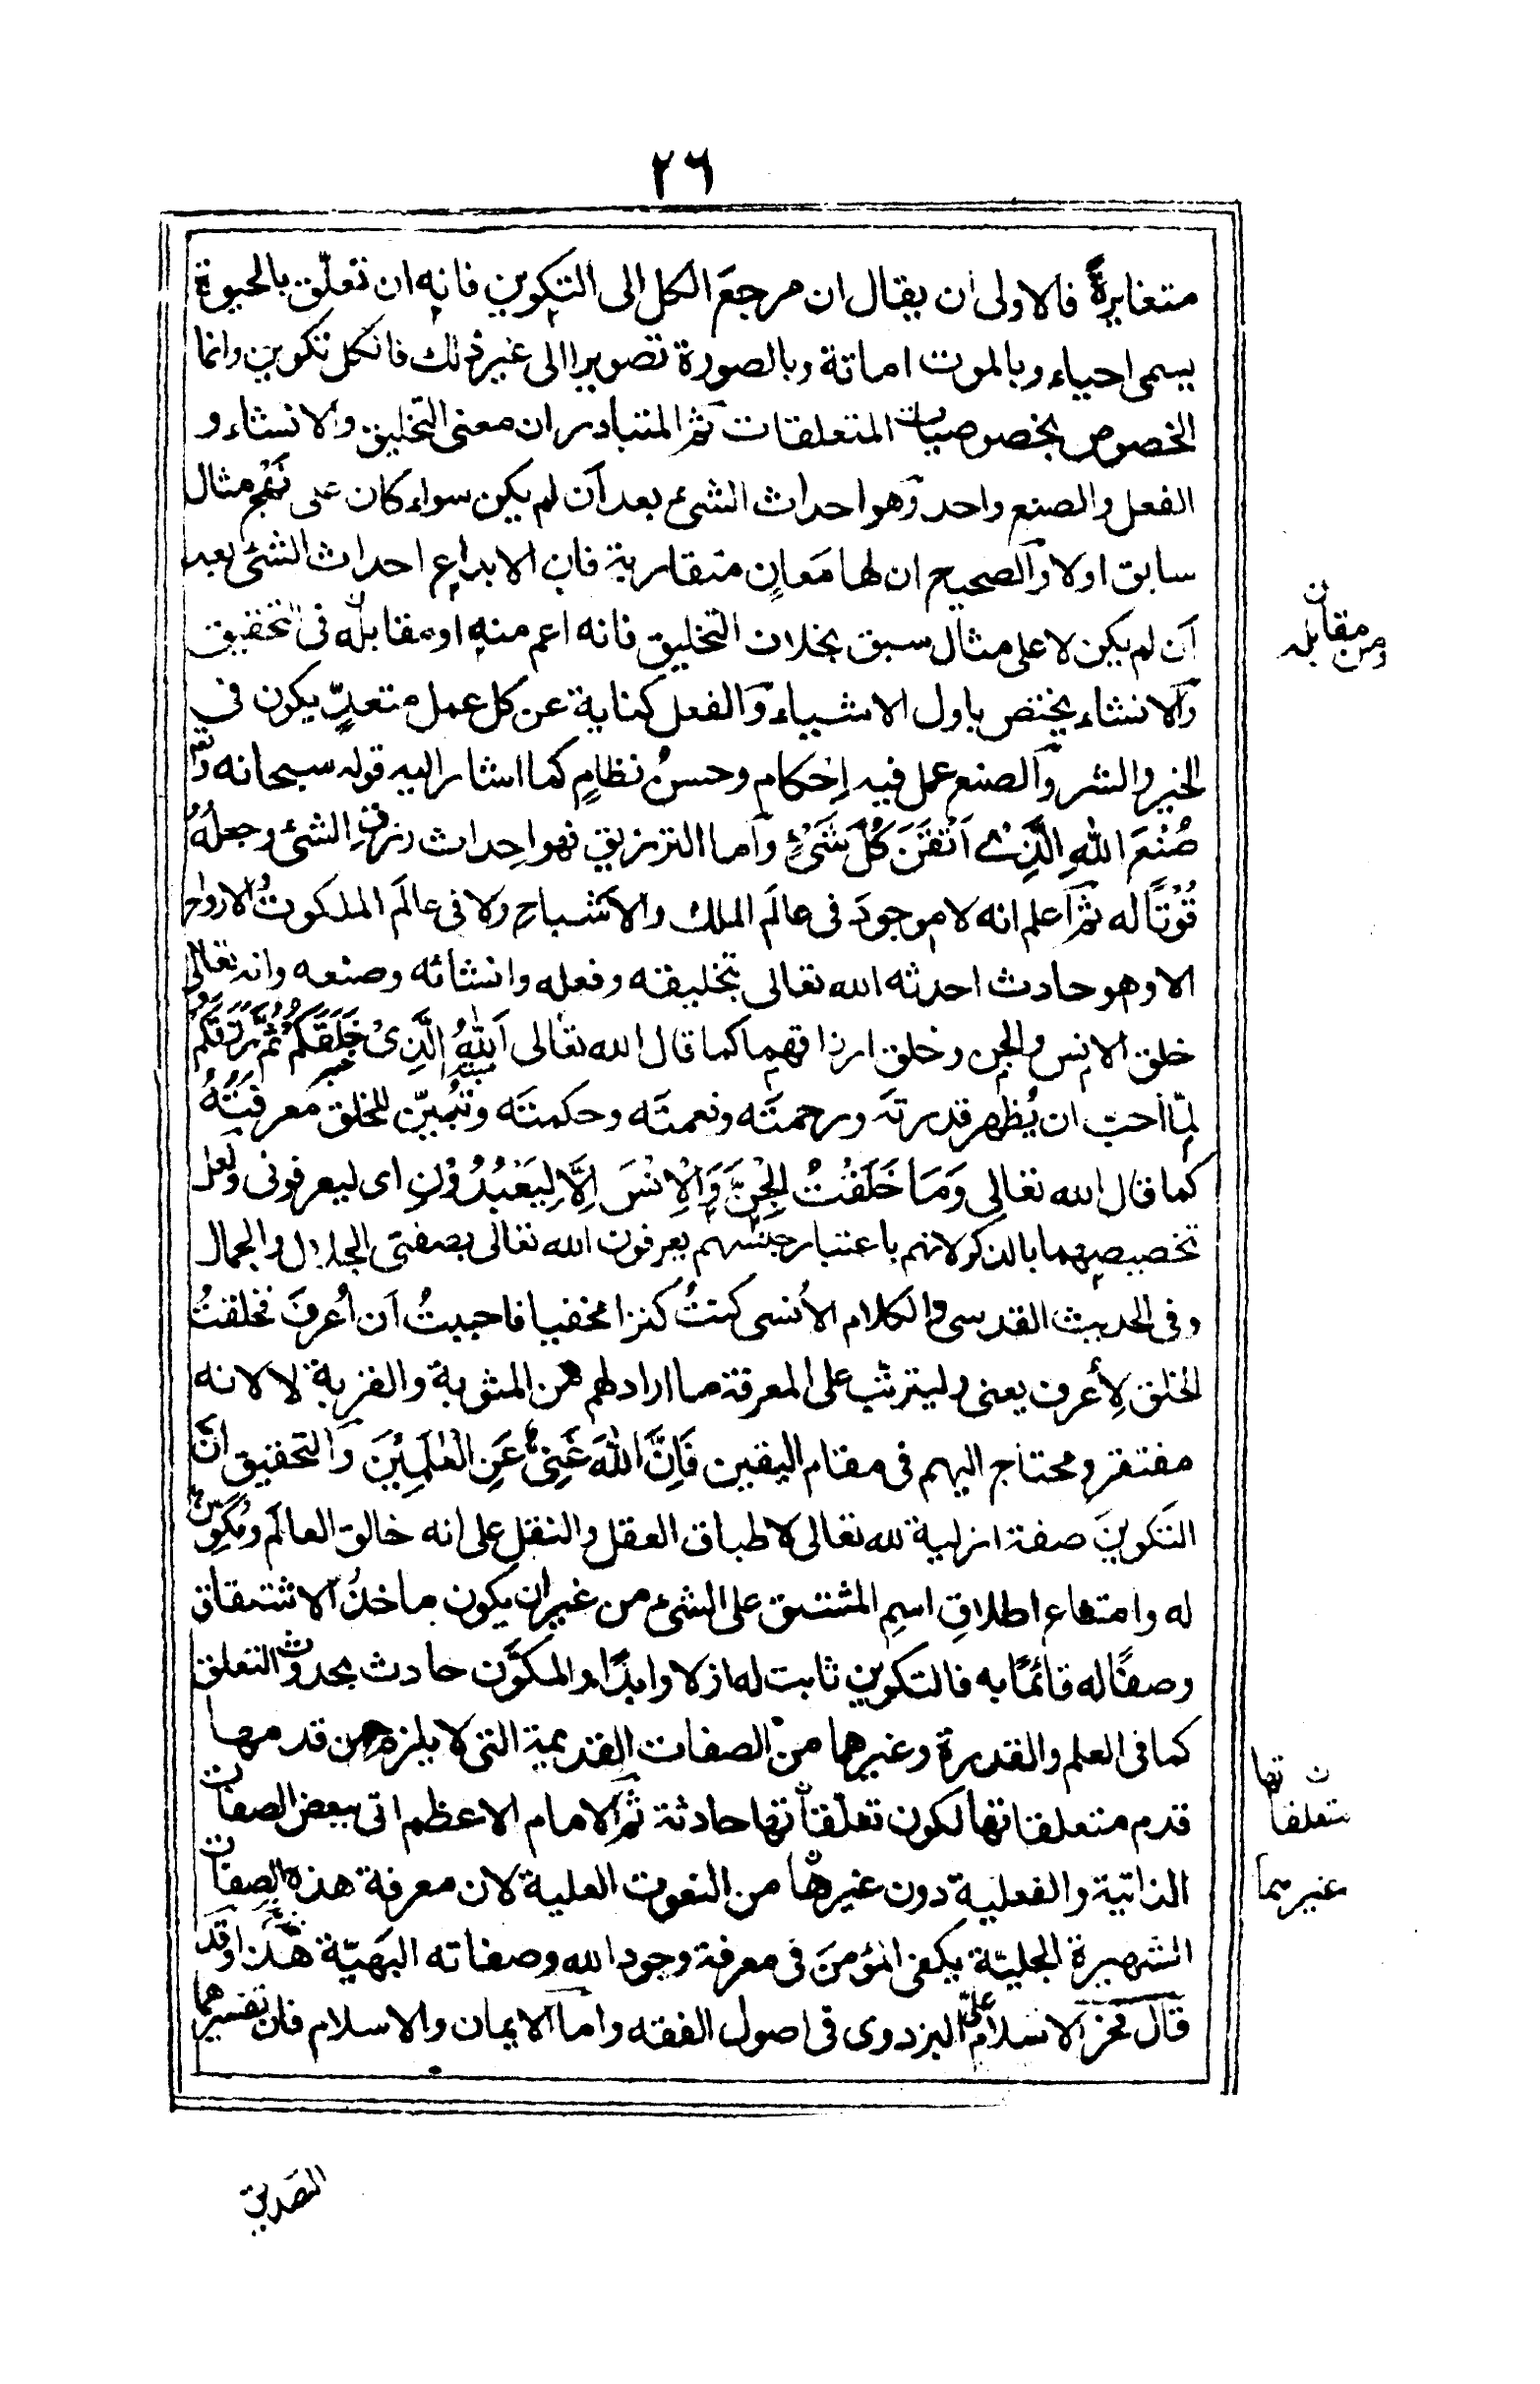 ٢٦
متغايرةً فالاولى ان يقال ان مرجعَ الكل الى التكوين فانه ان تعلّق بالحيوة
يسمى احياء وبالموت اماتة وبالصورة تصويرا الى غير ذلك فالكل تكوين وانما
الخصوص بخصوصيات المتعلقات ثم المتبادر ان معنى التخليق والانشاء و
الفعل والصنع واحد وهو احداث الشىء بعد اَن لم يكن سواء كان على نَهْجِ مثال
سابق اولا والصحيح ان لها مَعانٍ متقاربة فان الابداع احداث الشىء بعد
اَن لم يكن لا على مثال سبق بخلاف التخليق فانه اعم منه او مقابله فى التحقيق
والانشاء يختص باول الاشياء والفعل كناية عن كل عمل متعدٍّ يكون فى
الخير والشر والصنع عمل فيه اِحكام وحسنُ نظامٍ كما اشار اليه قوله سبحانه وتعالى
صُنْعَ اللهِ الَّذِىْ اَتْقَنَ كُلَّ شَىْءٍ واَما الترزيق فهو احِداث رزقِ الشىء وجعلهُ
قُوْتًا له ثم اعلم انه لا موجودَ فى عالَم الملك والاَشباحِ ولا فى عالَم الملكوت والارواح
الا وهو حادث احدثه الله تعالى بتخليقه وفعله وانشائه وصنعه وانه تعالى
خلق الانس والجن وخلق ارزاقهما كما قال الله تعالى اَللهُ الَّذِىْ خَلَقَكُمْ ثُمَّ رَزَقَكُمْ
لِمّا احبّ ان يُظهر قدرتَه ورحمتَه ونعمتَه وحكمتَه وتُبيِّن للخلق معرفتَهُ
كما قال الله تعالى وَمَا خَلَقْتُ الْجِنَّ وَالْاِنْسَ اِلَّا لِيَعْبُدُوْنِ اى ليعرفونى ولعل
تخصيصهما بالذكر لانهم باعتبار جنسهم يعرفون الله تعالى بصفتى الجلال والجمال
وفى الحديث القدسى والكلام الاُنسى كنتُ كنزا مخفيا فاحببتُ اَن اُعرفَ فخلقتُ
الخلق لِأعرف يعنى وليترتب على المعرفة ما اراد لهم من المثوبة والقربة لا لانه
مفتقر ومحتاج اليهم فى مقام اليقين فَاِنَّ اللهَ غَنِىٌّ عَنِ الْعٰلَمِيْنَ والتحقيق انّ
التكوينَ صفة ازلية لله تعالى لاطباق العقل والنقل على انه خالق العالَم ومُكَوِّنٌ
له وامتناع اطلاقِ اسمِ المشتق على الشىء من غير ان يكون ماخذُ الاشتقاق
وصفًا له قائمًا به فالتكوين ثابت له ازلا وابدًا والمكوَّن حادث بحدوث التعلق
كما فى العلم والقدرة وغيرهما من الصفات القديمة التى لا يلزم من قدمها
قدم متعلقاتها لكون تعلّقاتها حادثة ثم الامام الاعظم اتى ببعض الصفات
الذاتية والفعلية دون غيرها من النعوت العلية لان معرفة هذه الصفات
الشهيرة الجليّة يكفى المؤمنَ فى معرفة وجود الله وصفاته البَهيّة هٰذا وقد
قال فخر الاسلام على البزدوى فى اصول الفقه واما الايمان والاسلام فان تفسيرهما
ن
ومن مقابله
ن
متعلقاتها
غيرهما
التصديق